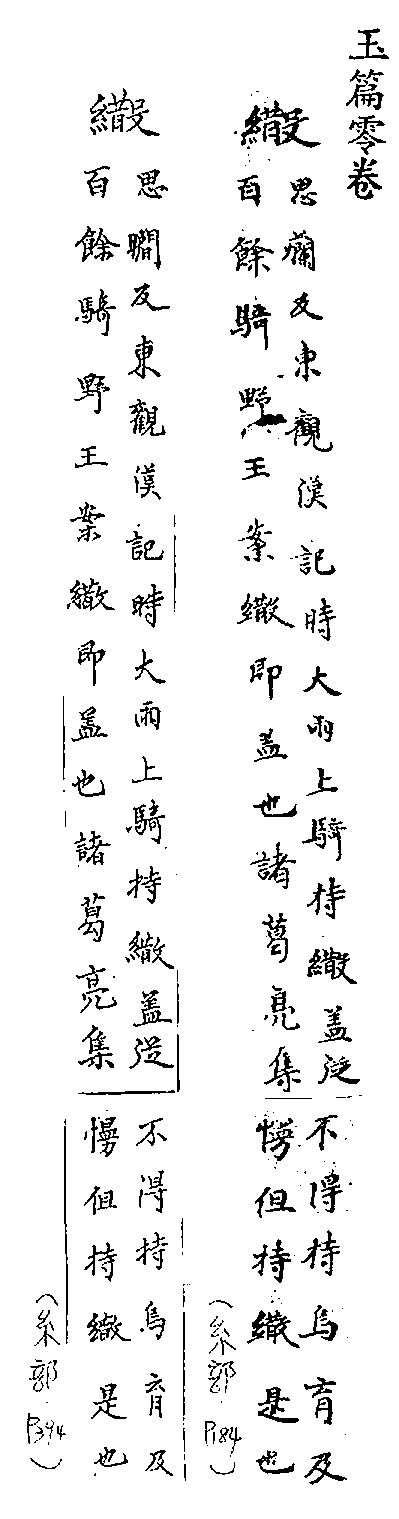 玉篇零卷
繖 思爛反東觀漢記時大雨上騎持繖盖從
百餘騎野王案繖即盖也諸葛亮集
不得持烏育及
幔但持繖是也
(糸部 P184)
繖 思瞷反東觀漢記時大雨上騎持繖盖從
百餘騎野王案繖即盖也諸葛亮集
不得持烏育及
幔但持繖是也
(糸部 P394)